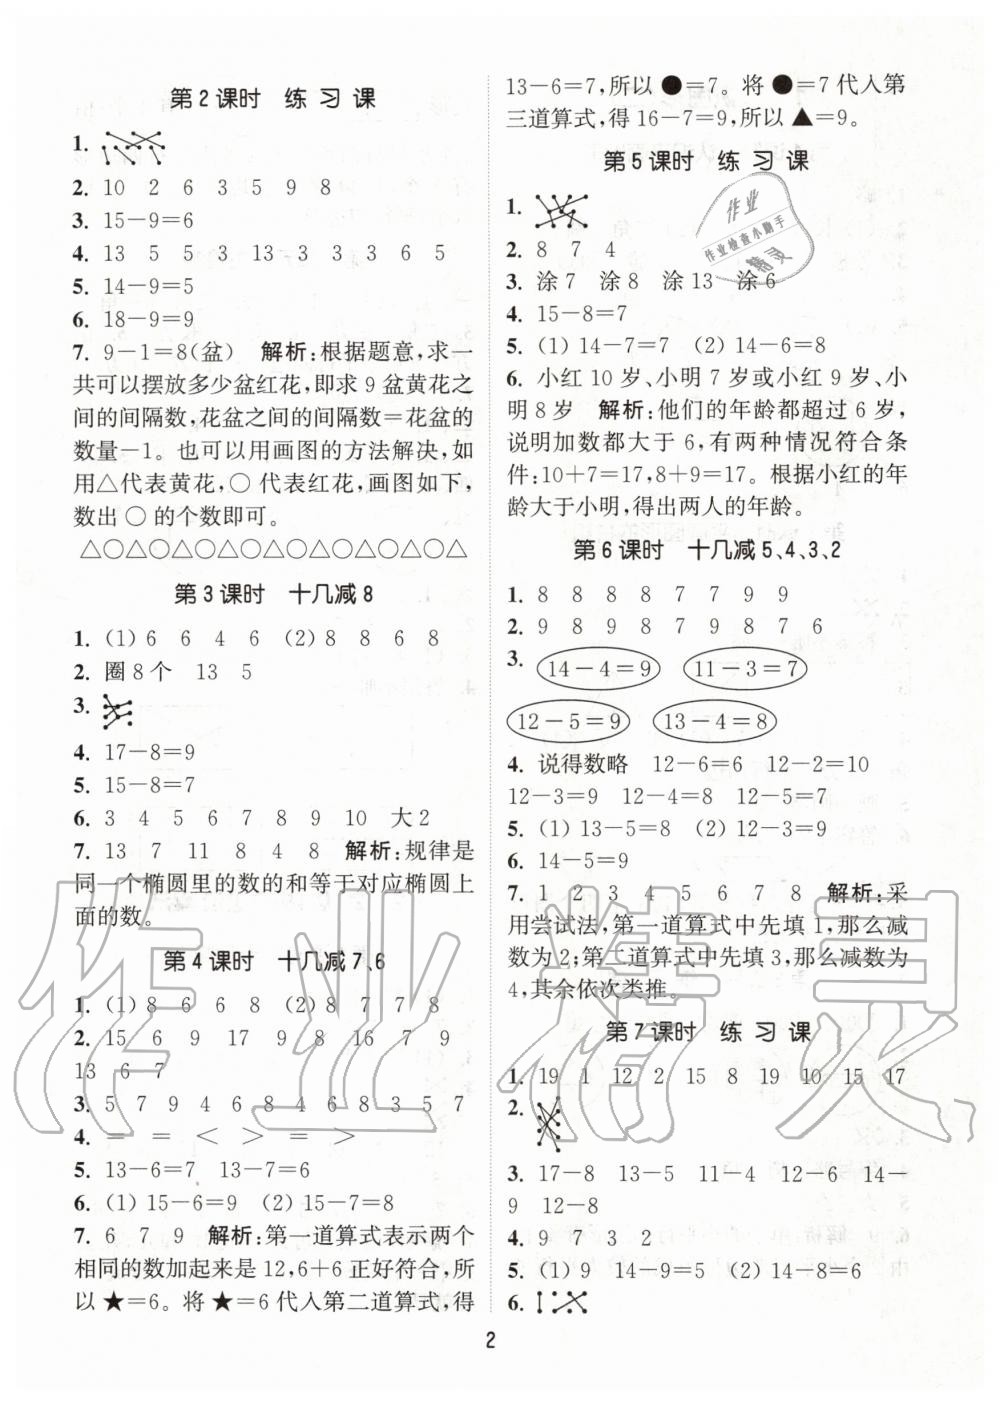 第2课时 练习课
1.
2. 10 2 6 3 5 9 8
3. 15－9＝6
4. 13 5 5 3 13 3 3 3 6 5
5. 14－9＝5
6. 18－9＝9
7. 9－1＝8(盆) 解析:根据题意,求一
共可以摆放多少盆红花,即求9盆黄花之
间的间隔数,花盆之间的间隔数＝花盆的
数量－1。也可以用画图的方法解决,如
用△代表黄花,○代表红花,画图如下,
数出○的个数即可。
△○△○△○△○△○△○△○△○△
第3课时 十几减8
1. (1) 6 6 4 6 (2) 8 8 6 8
2. 圈8个 13 5
3.
4. 17－8＝9
5. 15－8＝7
6. 3 4 5 6 7 8 9 10 大2
7. 13 7 11 8 4 8 解析:规律是
同一个椭圆里的数的和等于对应椭圆上
面的数。
第4课时 十几减7、6
1. (1) 8 6 6 8 (2) 8 7 7 8
2. 15 6 9 17 9 8 16 7 9
13 6 7
3. 5 7 9 4 6 8 4 6 8 3 5 7
4. ＝ ＝ ＜ ＞ ＝ ＞
5. 13－6＝7 13－7＝6
6. (1) 15－6＝9 (2) 15－7＝8
7. 6 7 9 解析:第一道算式表示两个
相同的数加起来是12,6＋6正好符合,所
以★＝6。将★＝6代入第二道算式,得
13－6＝7,所以●＝7。将●＝7代入第
三道算式,得16－7＝9,所以▲＝9。
第5课时 练习课
1.
2. 8 7 4
3. 涂7 涂8 涂13 涂6
4. 15－8＝7
5. (1) 14－7＝7 (2) 14－6＝8
6. 小红10岁、小明7岁或小红9岁、小
明8岁 解析:他们的年龄都超过6岁,
说明加数都大于6,有两种情况符合条
件:10＋7＝17,8＋9＝17。根据小红的年
龄大于小明,得出两人的年龄。
第6课时 十几减5、4、3、2
1. 8 8 8 8 7 7 9 9
2. 9 8 9 8 7 9 8 7 6
3. 14－4＝9 11－3＝7
12－5＝9 13－4＝8
4. 说得数略 12－6＝6 12－2＝10
12－3＝9 12－4＝8 12－5＝7
5. (1) 13－5＝8 (2) 12－3＝9
6. 14－5＝9
7. 1 2 3 4 5 6 7 8 解析:采
用尝试法,第一道算式中先填1,那么减
数为2;第二道算式中先填3,那么减数为
4,其余依次类推。
第7课时 练习课
1. 19 1 12 2 15 8 19 10 15 17
2.
3. 17－8 13－5 11－4 12－6 14－
9 12－8
4. 9 7 3 2
5. (1) 9 14－9＝5 (2) 14－8＝6
6.
2
作业
作业检查小助手
精灵
作业精灵